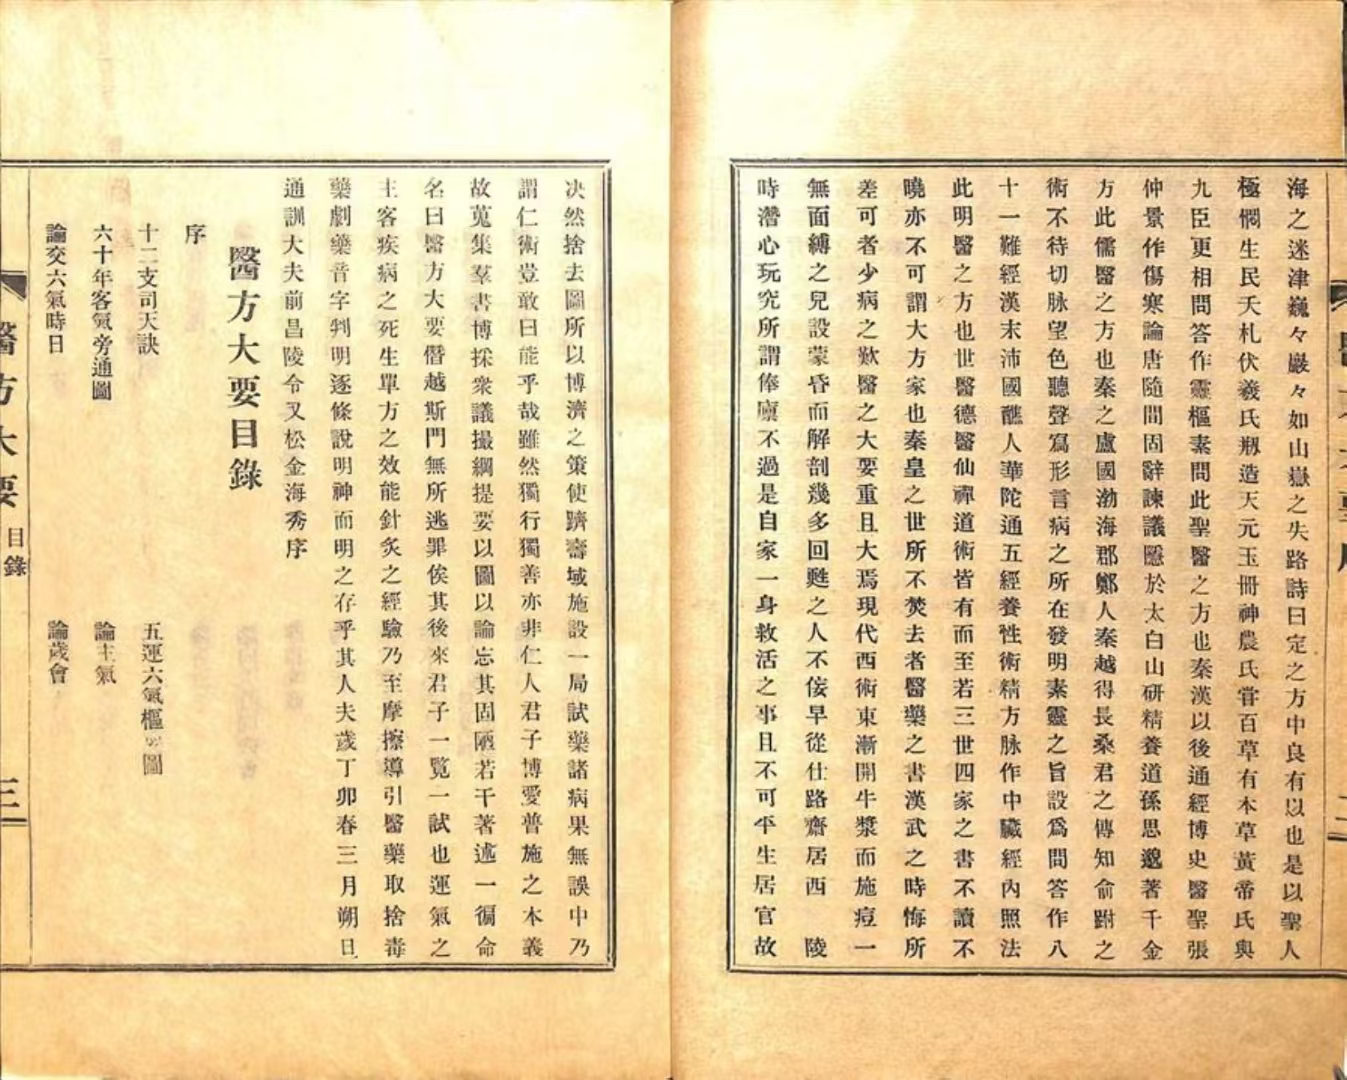 海之迷津巍々巖々如山嶽之失路詩曰定之方中良有以也是以聖人
極憫生民夭札伏羲氏剏造天元玉冊神農氏嘗百草有本草黃帝氏與
九臣更相問答作靈樞素問此聖醫之方也秦漢以後通經博史醫聖張
仲景作傷寒論唐隨間固辭諫議隱於太白山硏精養道孫思邈著千金
方此儒醫之方也秦之盧國渤海郡鄭人秦越得長桑君之傳知俞跗之
術不待切脉望色聽聲寫形言病之所在發明素靈之旨設爲問答作八
十一難經漢末沛國譙人華陀通五經養性術精方脉作中臟經內照法
此明醫之方也世醫德醫仙禪道術皆有而至若三世四家之書不讀不
曉亦不可謂大方家也秦皇之世所不焚去者醫藥之書漢武之時悔所
差可者少病之歎醫之大要重且大焉現代西術東漸開牛漿而施痘一
無面縛之兒設蒙昏而解剖幾多回甦之人不侫早從仕路齋居西 陵
時潛心玩究所謂俸廩不過是自家一身救活之事且不可平生居官故
决然捨去圖所以博濟之策使躋壽域施設一局試藥諸病果無誤中乃
謂仁術豈敢曰能乎哉雖然獨行獨善亦非仁人君子博愛普施之本義
故蒐集羣書博採衆議撮綱提要以圖以論忘其固陋若干著述一徧命
名曰醫方大要僭越斯門無所逃罪俟其後來君子一覽一試也運氣之
主客疾病之死生單方之效能針炙之經驗乃至摩擦導引醫藥取捨毒
藥劇藥音字判明逐條說明神而明之存乎其人夫歲丁卯春三月朔日
通訓大夫前昌陵令又松金海秀序
醫方大要目錄
序
十二支司天訣 五運六氣樞 圖
六十年客氣旁通圖 論主氣
論交六氣時日 論歲會
醫方大要 目錄 三